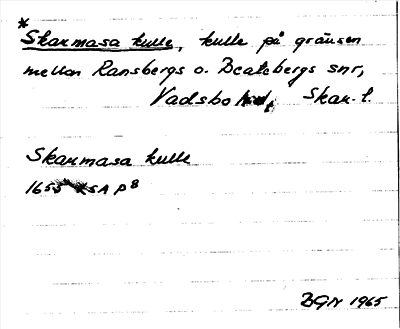 *
Skarmasa kulle, kulle på gränsen
mellan Ransbergs o. Beatebergs snr,
Vadsbo hd, Skar. l.
Skarmasa kulle
1655 KSA p 8
BGN 1965